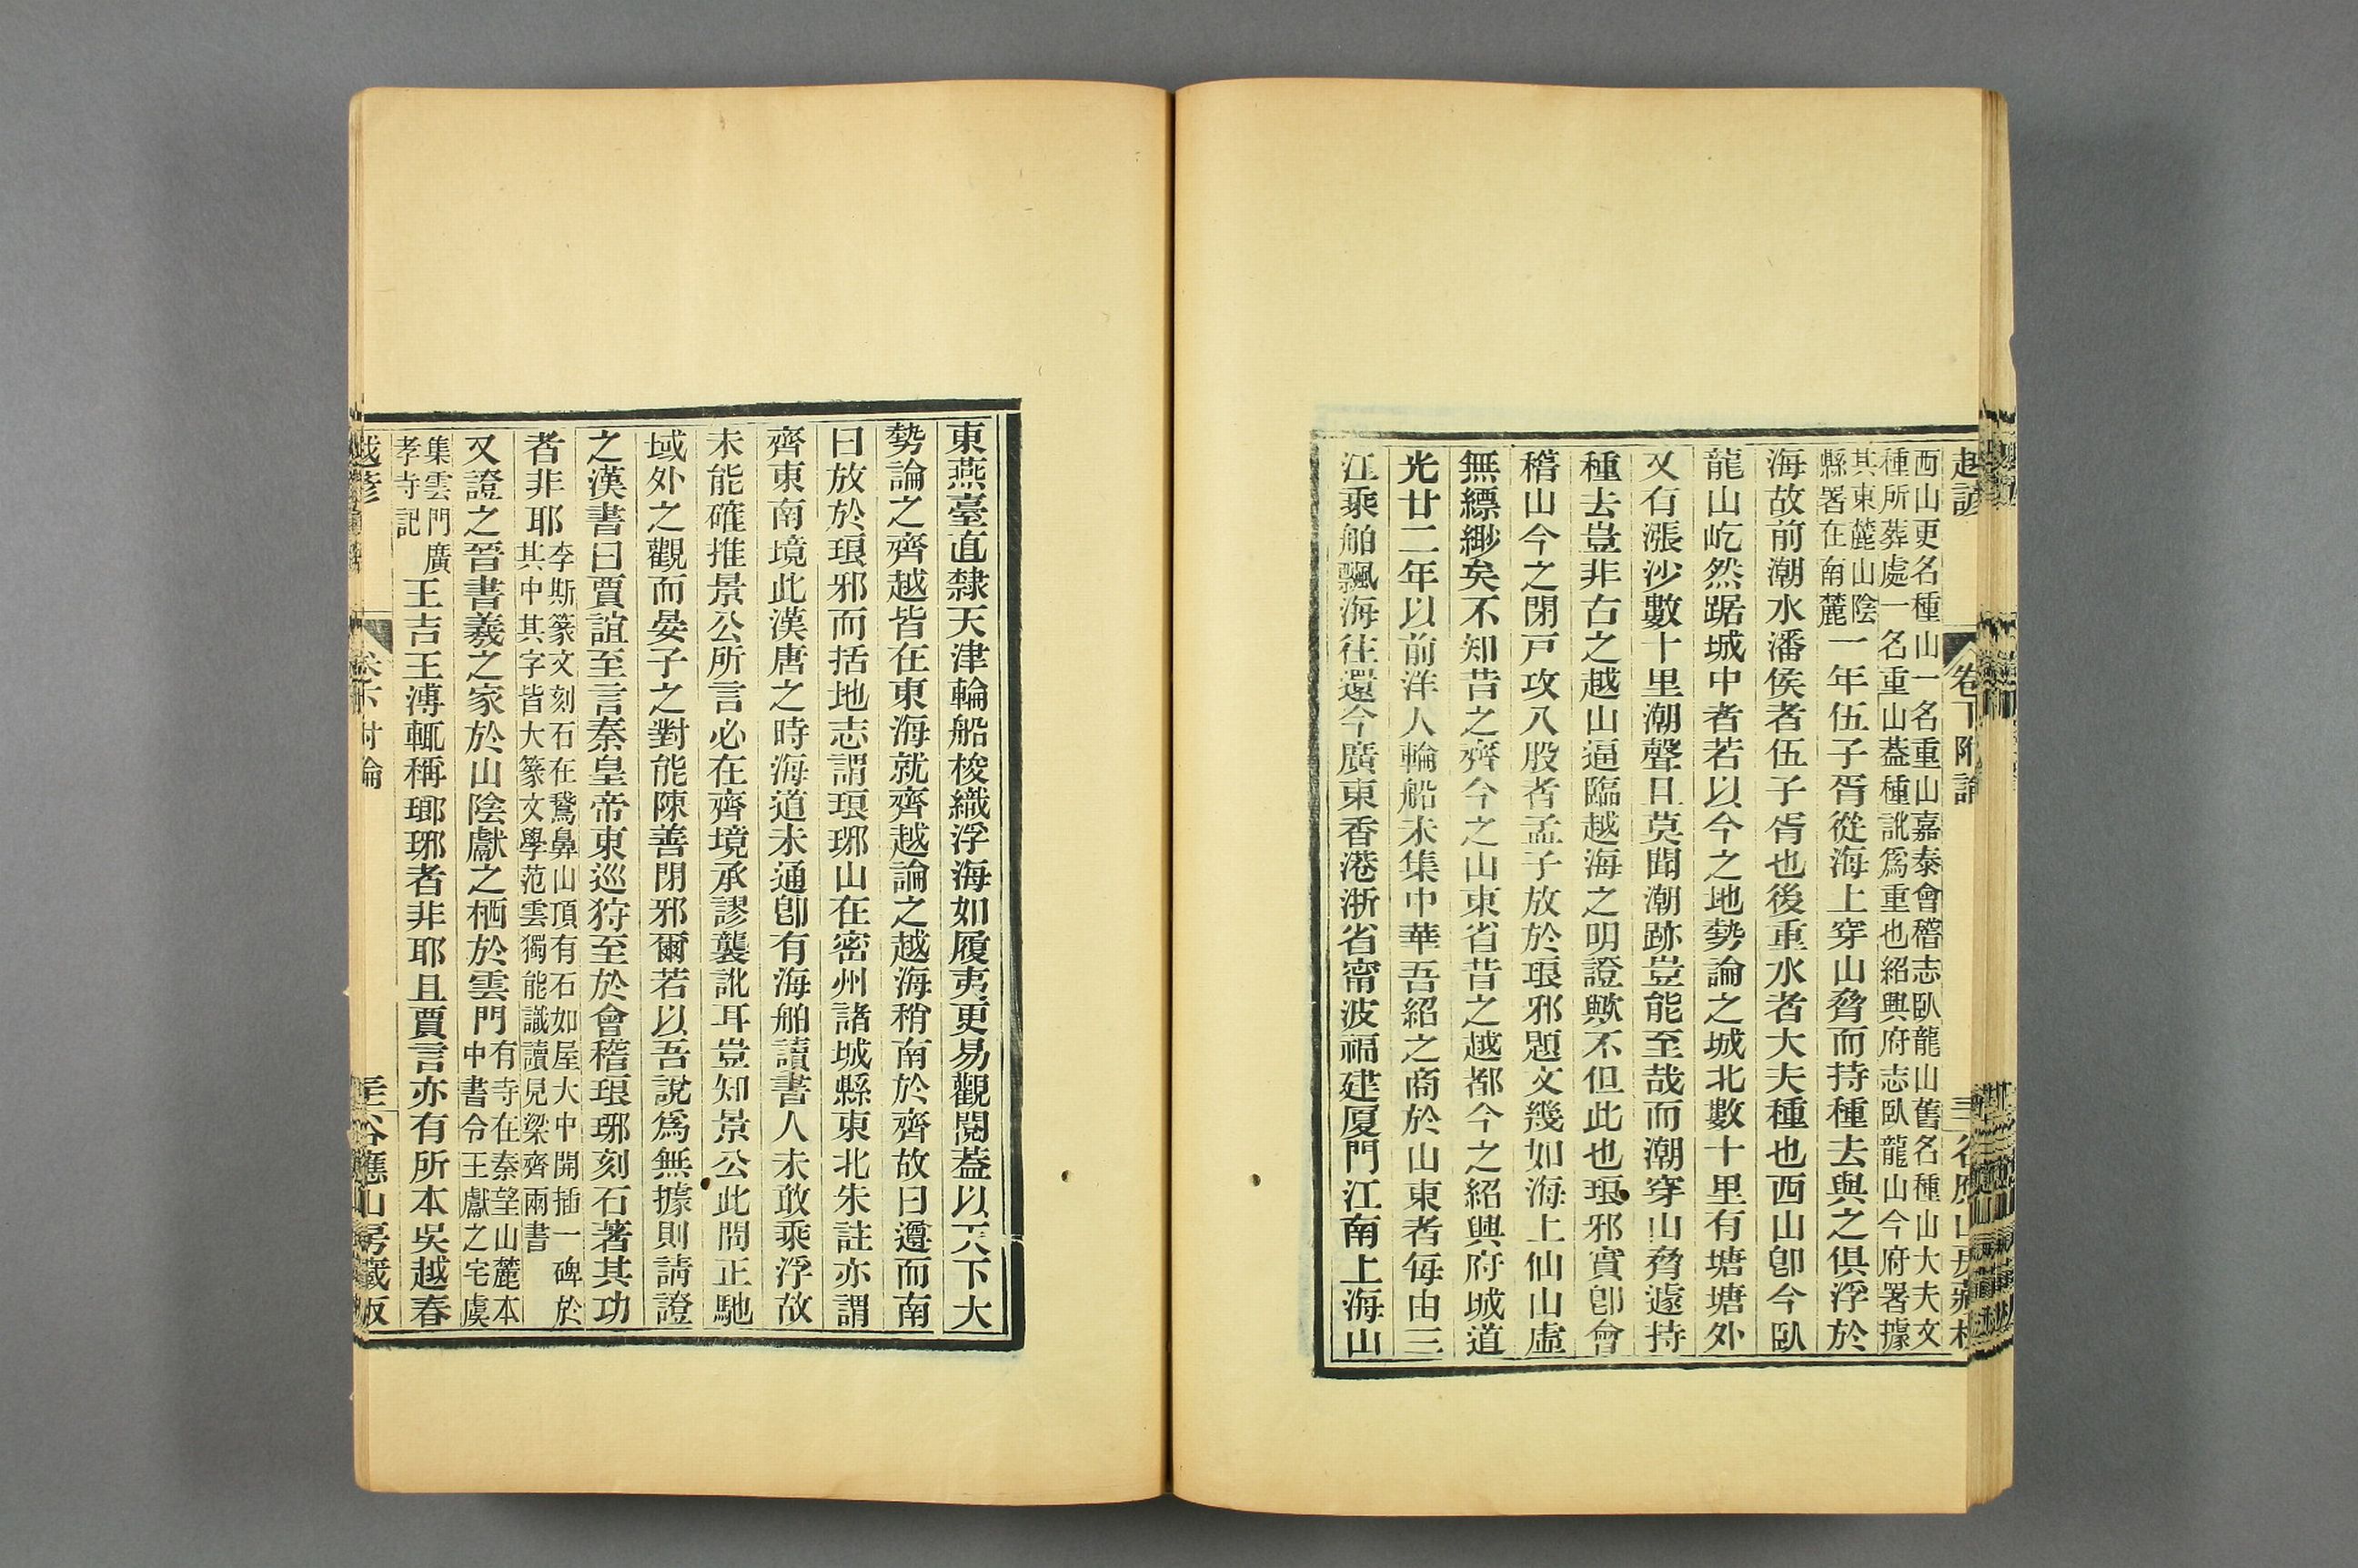 越諺
卷下附論
谷應山房藏板
西山更名種山一名重山嘉泰會稽志臥龍山舊名種山大夫文
種所葬處一名重山葢種訛爲重也紹興府志臥龍山今府署據
其東麓山陰
縣署在南麓
一年伍子胥從海上穿山脅而持種去與之俱浮於
海故前潮水潘侯者伍子胥也後重水者大夫種也西山卽今臥
龍山屹然踞城中者若以今之地勢論之城北數十里有塘塘外
又有漲沙數十里潮聲且莫聞潮跡豈能至哉而潮穿山脅遽持
種去豈非古之越山逼臨越海之明證歟不但此也琅邪實卽會
稽山今之閉戸攻八股者孟子放於琅邪題文幾如海上仙山虛
無縹緲矣不知昔之齊今之山東省昔之越都今之紹興府城道
光廿二年以前洋人輪船未集中華吾紹之商於山東者每由三
江乘舶飄海往還今廣東香港浙省甯波福建厦門江南上海山
東燕臺直隸天津輪船梭織浮海如履夷更易觀閱葢以天下大
勢論之齊越皆在東海就齊越論之越海稍南於齊故曰遵而南
曰放於琅邪而括地志謂琅琊山在密州諸城縣東北朱註亦謂
齊東南境此漢唐之時海道未通卽有海舶讀書人未敢乘浮故
未能確推景公所言必在齊境承謬襲訛耳豈知景公此問正馳
域外之觀而晏子之對能陳善閉邪爾若以吾說爲無據則請證
之漢書曰賈誼至言秦皇帝東巡狩至於會稽琅琊刻石著其功
者非耶
李斯篆文刻石在鵞鼻山頂有石如屋大中開插一碑於
其中其字皆大篆文學范雲獨能識讀見梁齊兩書
又證之晉書羲之家於山陰獻之栖於雲門
有寺在秦望山麓本
中書令王獻之宅虞
集雲門廣
孝寺記
王吉王溥輒稱瑯琊者非耶且賈言亦有所本吳越春
越諺
卷下附論
谷應山房藏板